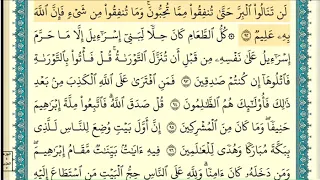 لَن تَنَالُوا۟ ٱلْبِرَّ حَتَّىٰ تُنفِقُوا۟ مِمَّا تُحِبُّونَ ۚ وَمَا تُنفِقُوا۟ مِن شَىْءٍ فَإِنَّ ٱللَّهَ
بِهِۦ عَلِيمٌ ۝٩٢ كُلُّ ٱلطَّعَامِ كَانَ حِلًّا لِّبَنِىٓ إِسْرَٰٓءِيلَ إِلَّا مَا حَرَّمَ
إِسْرَٰٓءِيلُ عَلَىٰ نَفْسِهِۦ مِن قَبْلِ أَن تُنَزَّلَ ٱلتَّوْرَىٰةُ ۗ قُلْ فَأْتُوا۟ بِٱلتَّوْرَىٰةِ
فَٱتْلُوهَآ إِن كُنتُمْ صَٰدِقِينَ ۝٩٣ فَمَنِ ٱفْتَرَىٰ عَلَى ٱللَّهِ ٱلْكَذِبَ مِنۢ بَعْدِ
ذَٰلِكَ فَأُو۟لَٰٓئِكَ هُمُ ٱلظَّٰلِمُونَ ۝٩٤ قُلْ صَدَقَ ٱللَّهُ ۗ فَٱتَّبِعُوا۟ مِلَّةَ إِبْرَٰهِيمَ
حَنِيفًا وَمَا كَانَ مِنَ ٱلْمُشْرِكِينَ ۝٩٥ إِنَّ أَوَّلَ بَيْتٍ وُضِعَ لِلنَّاسِ لَلَّذِى
بِبَكَّةَ مُبَارَكًا وَهُدًى لِّلْعَٰلَمِينَ ۝٩٦ فِيهِ ءَايَٰتٌۢ بَيِّنَٰتٌ مَّقَامُ إِبْرَٰهِيمَ ۖ
وَمَن دَخَلَهُۥ كَانَ ءَامِنًا ۗ وَلِلَّهِ عَلَى ٱلنَّاسِ حِجُّ ٱلْبَيْتِ مَنِ ٱسْتَطَاعَ إِلَيْهِ